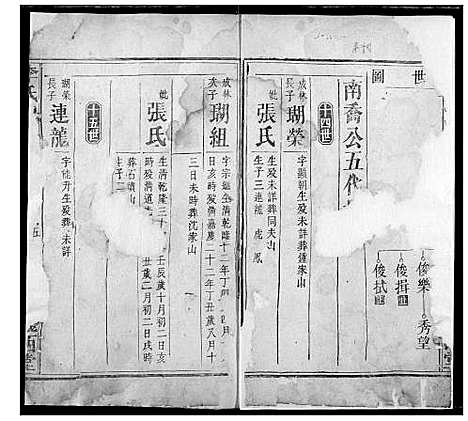 世
圖
俊樂 秀望
俊揖
俊拭
南喬公五代
十四世
成林長子 瑚榮
字顯朝生歿未詳葬鍾家山
妣 張氏
生歿未詳葬同夫山
生子三連龍 虎 鳳
成林次子 瑚組
字宗 生清乾隆十二年丁 月
日亥時歿清嘉慶二十二年丁丑歲八月十
三日未時葬沈家山
妣 張氏
生清乾隆三十 壬辰歲十月初二日亥
時歿清道 丑歲二月初二日戌時
葬石 山
生子二
十五世
瑚榮長子 連龍
字能升生歿葬未詳
氏
五